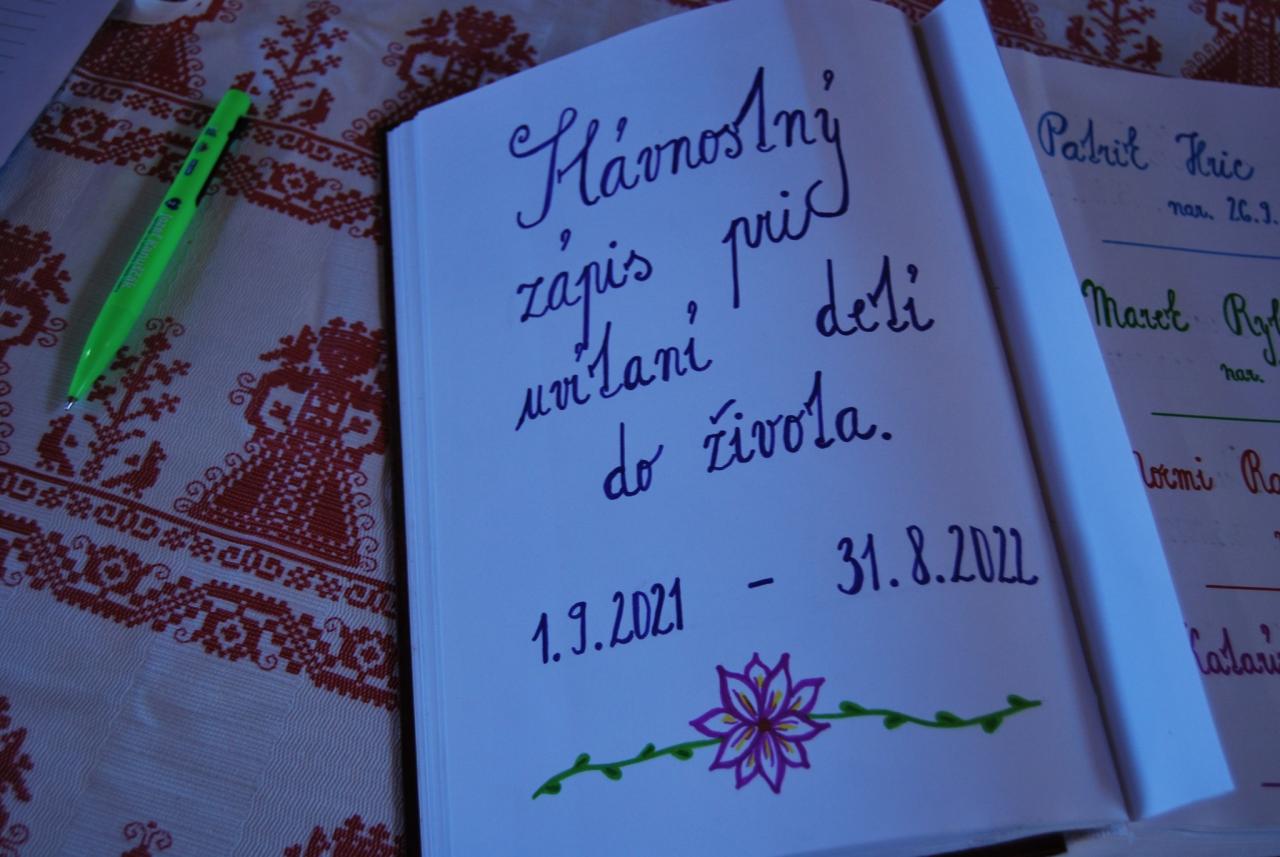 Slávnostný
zápis pri
uvítaní detí
do života.
1.9.2021 - 31.8.2022
Patrik Hric
nar. 26.9.
Marek
nar.